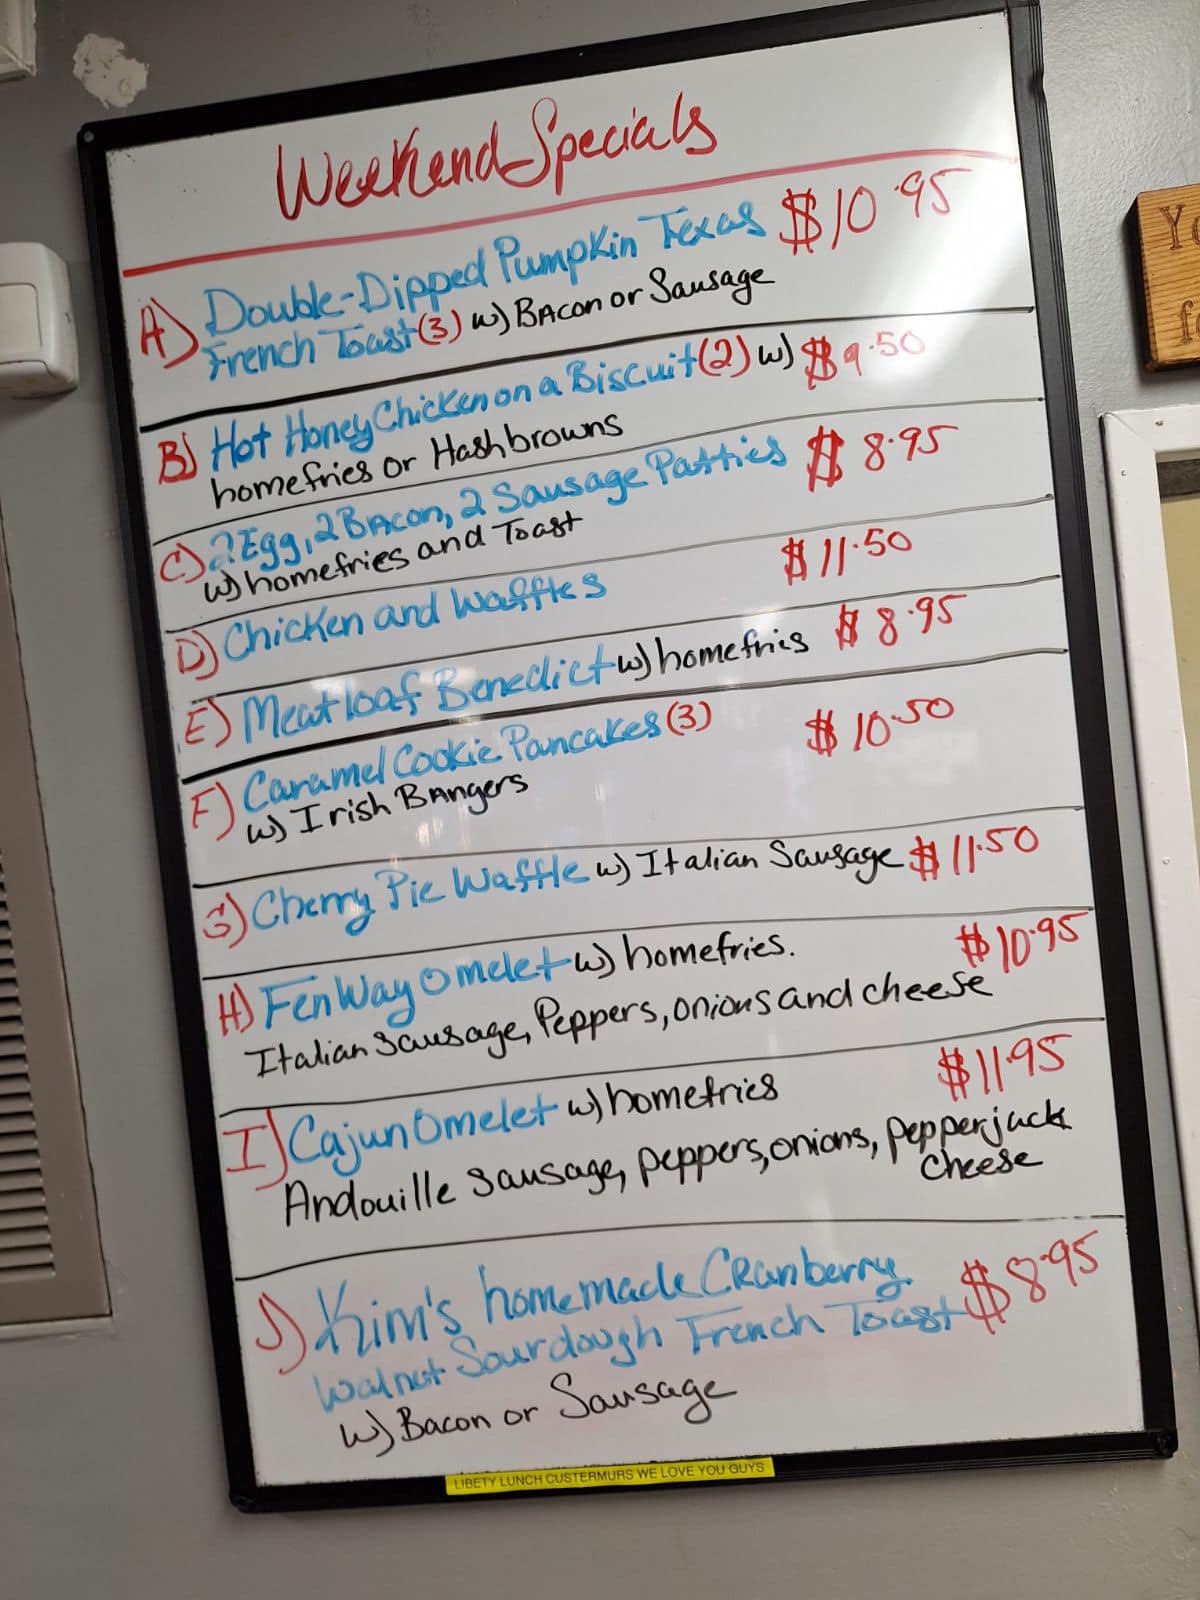 Weekend Specials
A) Double-Dipped Pumpkin Texas $10.95
French Toast (3) w) Bacon or Sausage
B) Hot Honey Chicken on a Biscuit (2) w) $9.50
homefries or Hashbrowns
C) 2 Egg, 2 Bacon, 2 Sausage Patties $8.95
w) homefries and Toast
D) Chicken and Waffles $11.50
E) Meatloaf Benedict w) homefries $8.95
F) Caramel Cookie Pancakes (3) $10.50
w) Irish Bangers
G) Cherry Pie Waffle w) Italian Sausage $11.50
H) FenWay Omelet w) homefries. $10.95
Italian Sausage, Peppers, onions and cheese
I) Cajun Omelet w) homefries $11.95
Andouille Sausage, peppers, onions, pepperjack
cheese
J) Kim's homemade Cranberry
Walnut Sourdough French Toast $8.95
w) Bacon or Sausage
LIBETY LUNCH CUSTERMURS WE LOVE YOU GUYS